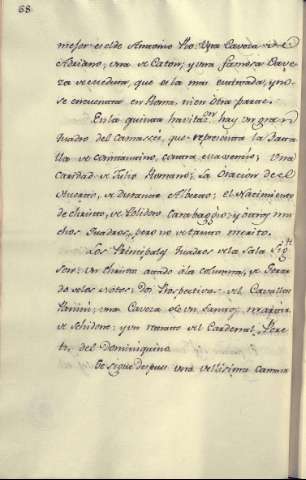 68.
mejor es el de Antonino Pio. Una Caveza de
Adriano; una de Caton; y una famosa Cave
za de que es la mas estimada, y no
se encuentra en Roma, ni en otra parte.
En la quinta havitaᵒⁿ hay un gran
Quadro del Camascè, que representa la Bata
lla de Constantino, contra Maxencio; Una
Caridad de Julio Romano; La Oracion de el
Huerto, de Durante Alberto; el Nacimiento
de Christo, de Polidoro Carabaggio; y otros mu
chos Quadros, pero no de tanto merito.
Los Principales Quadros de la Sala Sigᵗᵉ
son: Un Christo atado á la columna, de Gerar
do de las Notes; Dos Prospectivas del Cavallero
Panini; una Caveza de un Santo, Martir
de Schidone; y un retrato del Cardenal
del Dominiquino.
Se sigue despues una vellisima Camara